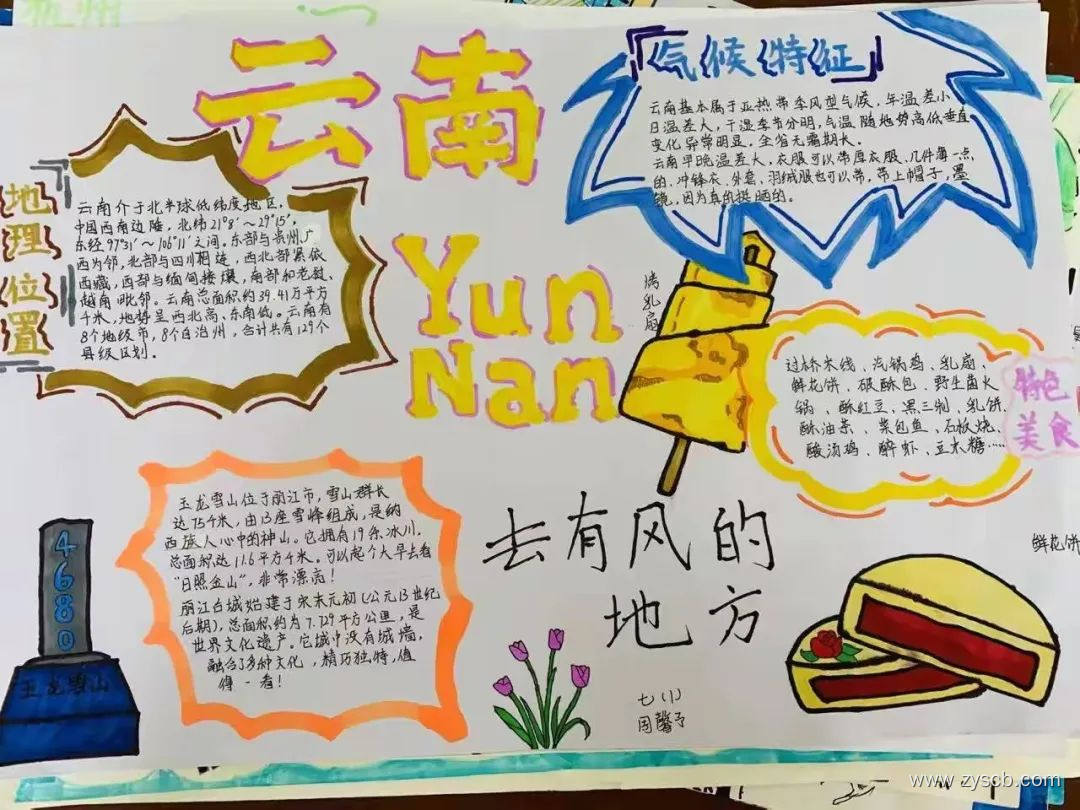 云南
Yun
Nan
地理位置
云南介于北半球低纬度地区,
中国西南边陲,北纬21°8′~29°15′,
东经97°31′~106°11′之间。东部与贵州、广
西为邻,北部与四川相连,西北部紧依
西藏,西部与缅甸接壤,南部和老挝、
越南毗邻。云南总面积约39.41万平方
千米,地势呈西北高、东南低。云南有
8个地级市,8个自治州,合计共有129个
县级区划。
气候特征
云南基本属于亚热带季风型气候,年温差小、
日温差大,干湿季节分明,气温随地势高低垂直
变化异常明显,全省无霜期长。
云南早晚温差大,衣服可以带厚衣服、几件薄一点
的、冲锋衣、外套、羽绒服也可以带,带上帽子,墨
镜,因为真的挺晒的。
烤乳扇
特色
美食
过桥米线、汽锅鸡、乳扇、
鲜花饼、破酥包、野生菌火
锅、酥红豆、黑三剁、乳饼、
酥油茶、菜包鱼、石板烧、
酸汤鸡、醉虾、豆末糖……
玉龙雪山位于丽江市,雪山群长
达75千米,由13座雪峰组成,是纳
西族人心中的神山。它拥有19条冰川,
总面积达11.6平方千米。可以起个大早去看
“日照金山”,非常漂亮!
丽江古城始建于宋末元初(公元13世纪
后期),总面积约为7.279平方公里,是
世界文化遗产。它城中没有城墙,
融合了多种文化,精巧独特,值
得一看!
4680
玉龙雪山
去有风的
地方
鲜花饼
七(1)
周馨予
www.zyscb.com